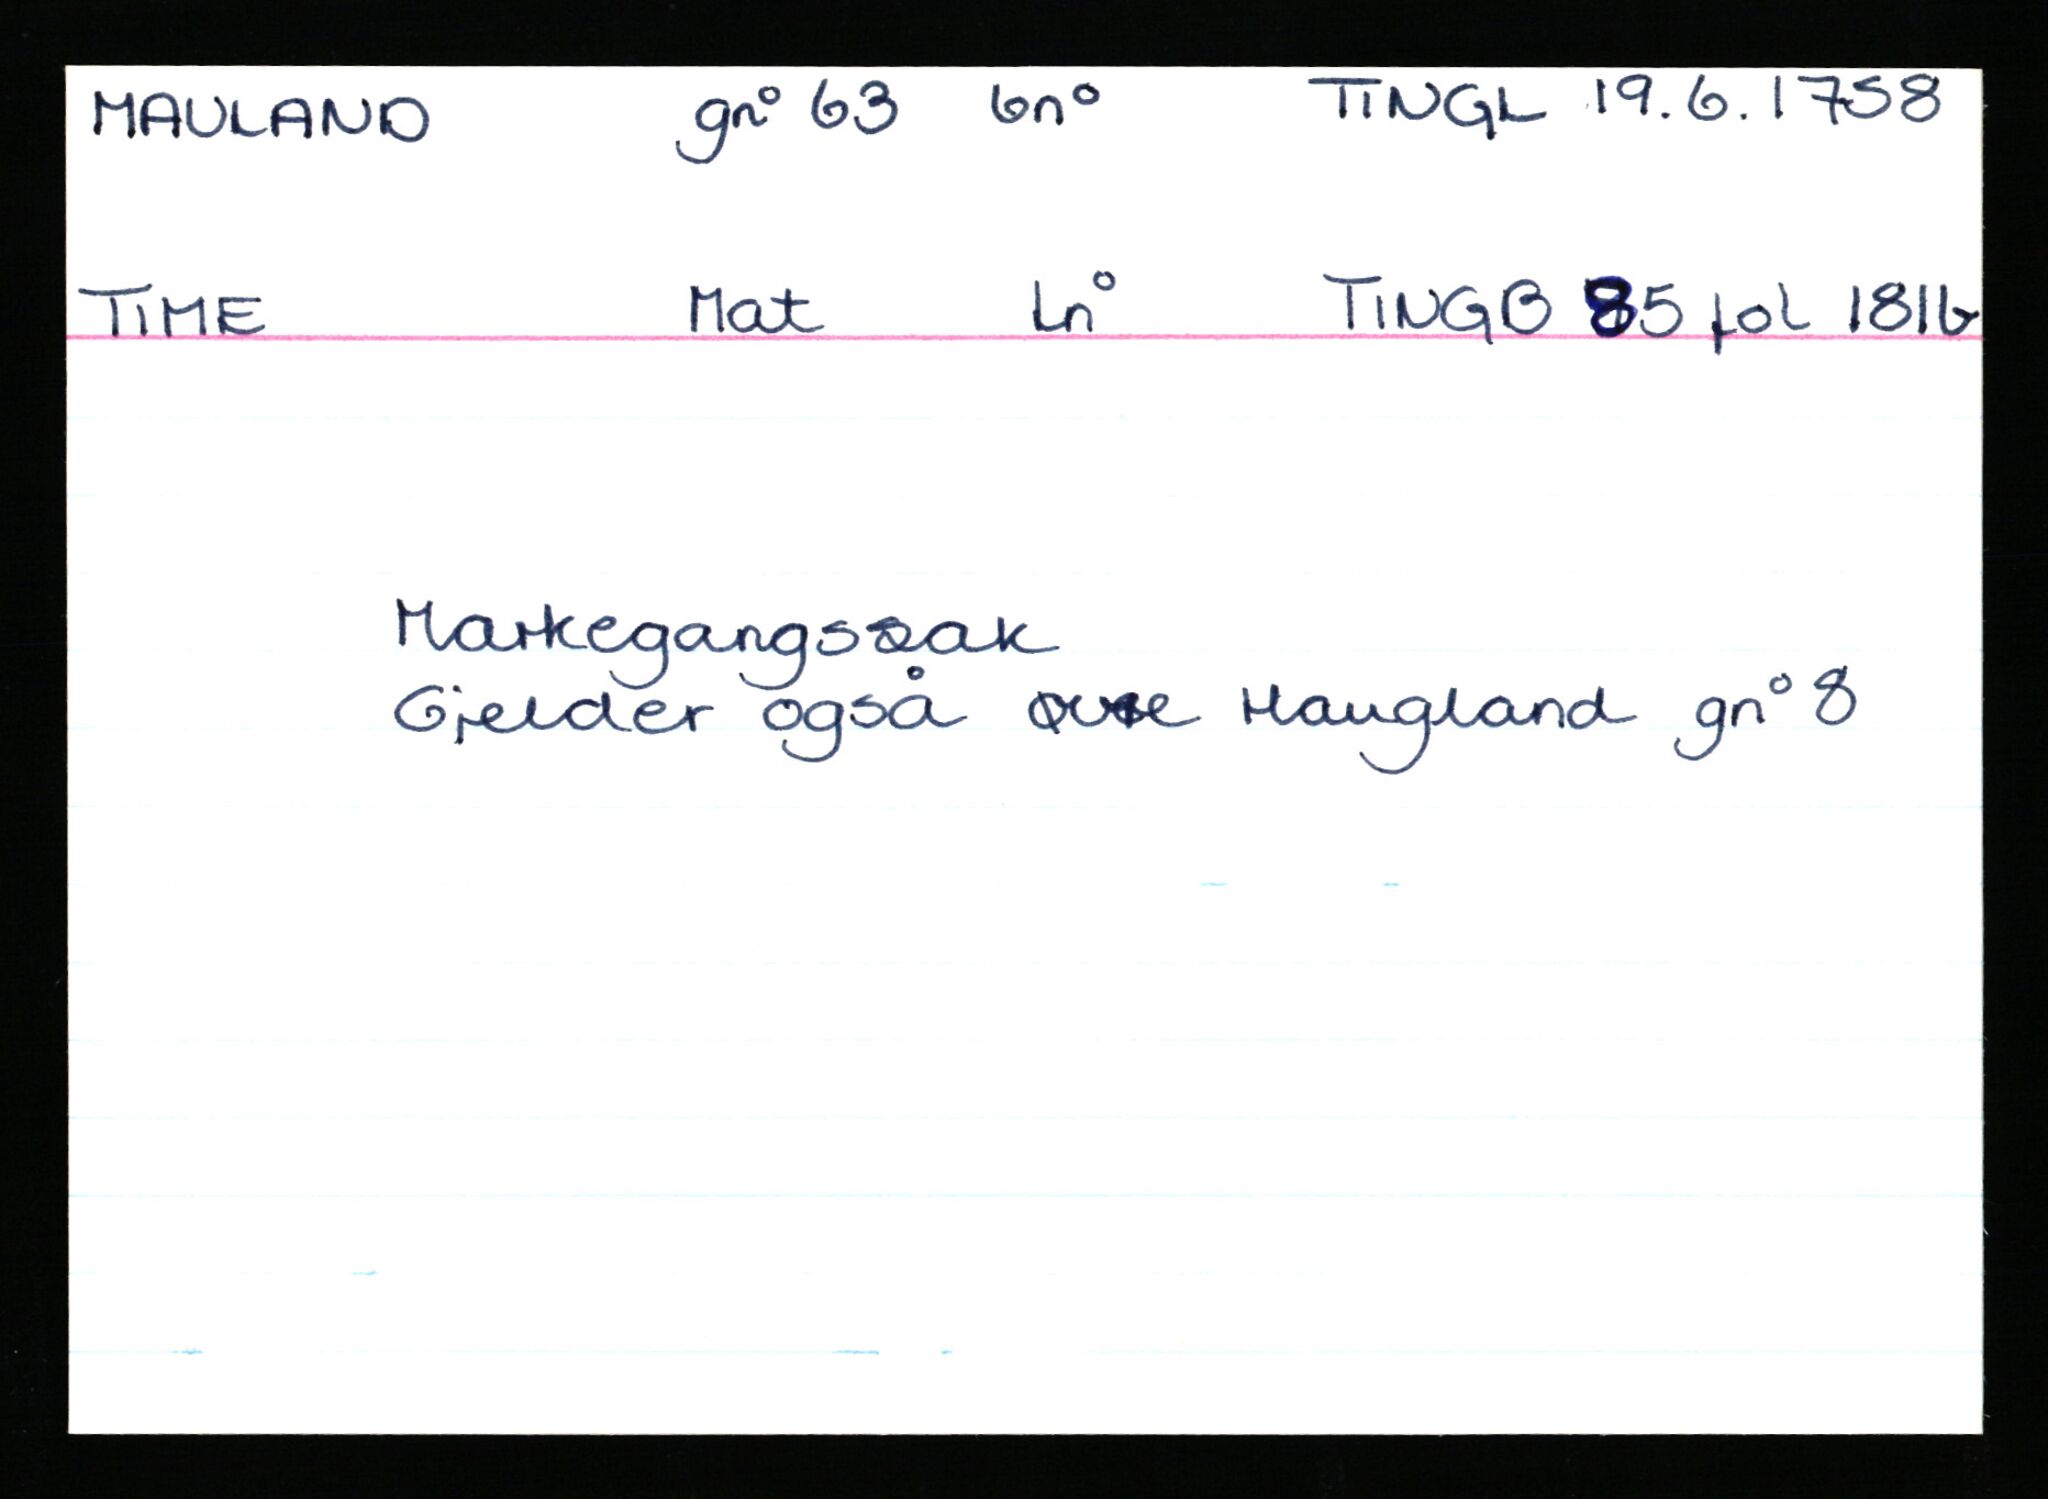 MAULAND gn° 63 bn° TINGL 19.6.1758
TIME Mat Ln° TINGB 85 fol 181b
Markegangssak
Gjelder også øvre Haugland gn° 8